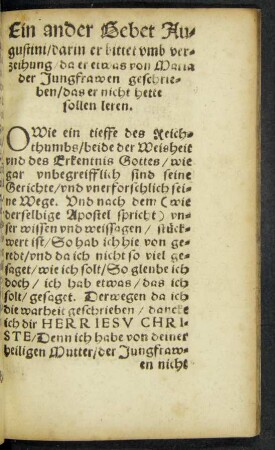 Ein ander Gebet Au-
gustini/darin er bittet vmb ver-
zeihung/da er etwas von Maria
der Jungfrawen geschrie-
ben/das er nicht hette
sollen leren.
O Wie ein tieffe des Reich-
thumbs/beide der Weisheit
vnd des Erkentnis Gottes/wie
gar vnbegreifflich sind seine
Gerichte/vnd vnerforschlich sei-
ne Wege. Vnd nach dem (wie
derselbige Apostel spricht) vn-
ser wissen vnd weissagen/stück-
wert ist/So hab ich hie von ge-
redt/vnd da ich nicht so viel ge-
saget/wie ich solt/So glenbe ich
doch/ich hab etwas/das ich
solt/gesaget. Derwegen da ich
die warheit geschrieben/dancke
ich dir HERR IESV CHRI-
STE/Denn ich habe von deiner
heiligen Mutter/der Jungfraw-
en nicht